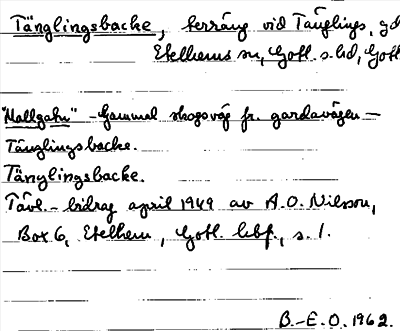 Tänglingsbacke, terräng vid Tänglings, gd
Etelhems sn, Gotl. s. hd, Gotl
"Mallgahn" - Gammal skogsväg fr. gardavägen -
Tänglingsbacke.
Tänglingsbacke.
Tävl. - bidrag april 1949 av A. O. Nilsson,
Box 6, Etelhem, Gotl. lbf., s. 1.
B.-E. O. 1962.